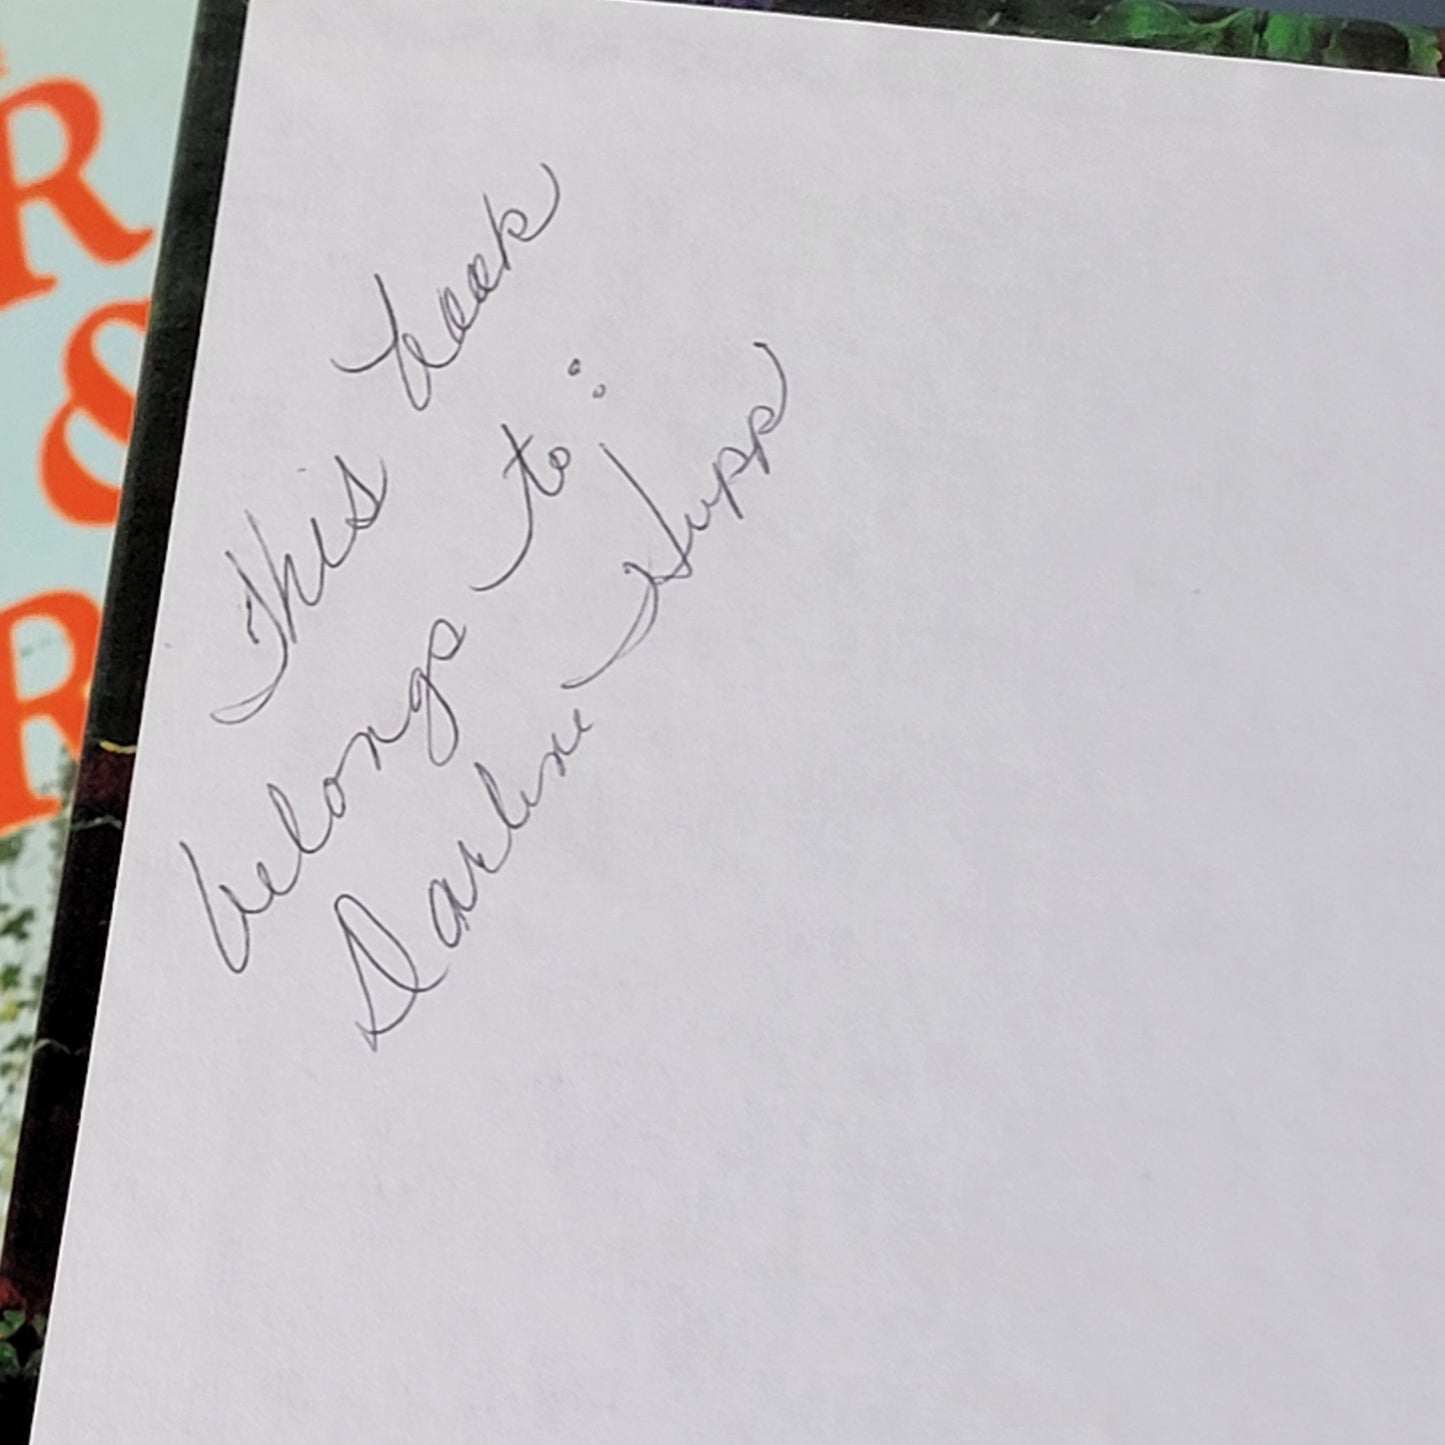 R
&
R
This book
belongs to:
Darlene Hupp